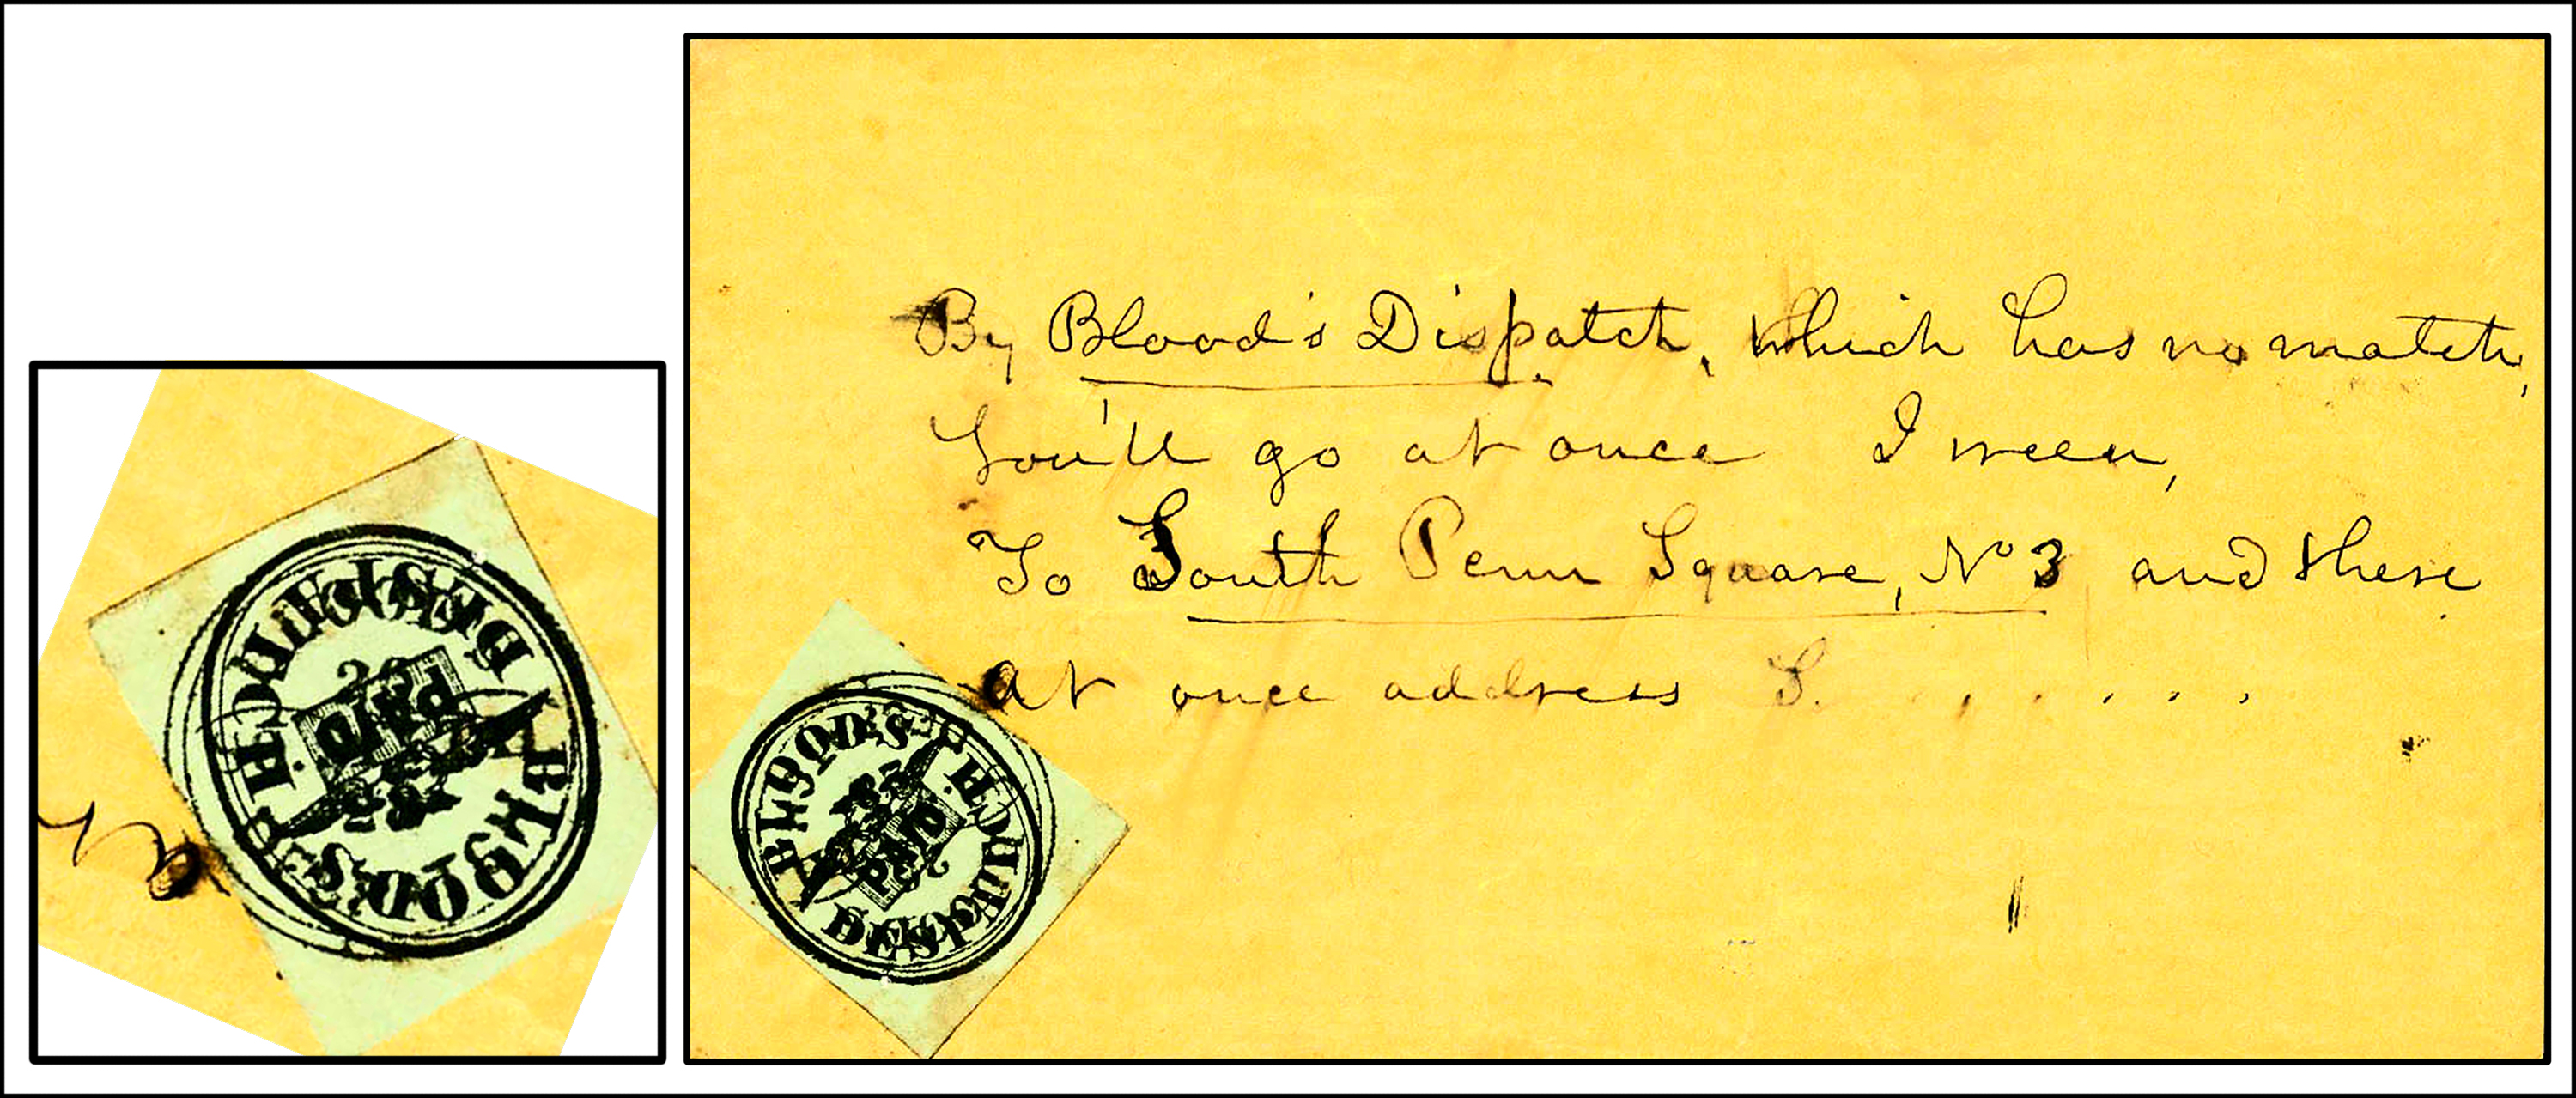 BLOOD'S DESPATCH.
PAID
By Blood's Dispatch, which has no match,
You'll go at once I ween,
To South Penn Square, No 3 and there
at once address S. . . . . . .
BLOOD'S DESPATCH.
PAID